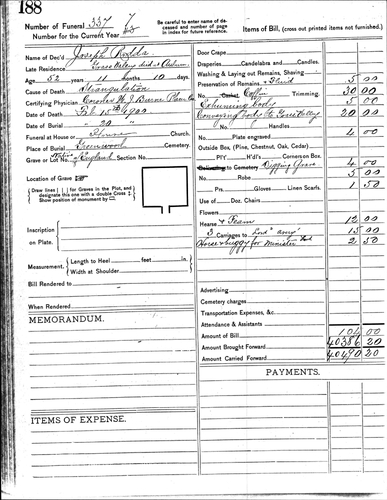 188
Number of Funeral 337
Number for the Current Year
Be carefull to enter name of deceased and number of funeral for future reference.
Items of Bill, (cross out printed items not furnished.)
Name of Dec'd Joseph Rodda
Late Residence Grass Valley died at Auburn
Age 52 years 11 months 10 days.
Cause of Death Strangulation
Certifying Physician Coroner
Date of Death Feb 15th 1900
Date of Burial 20 "
Funeral at House or Church.
Place of Burial Greenwood Cemetery.
Grave or Lot No. Section No.
Native of England
Location of Grave
Draw lines | / \ for Graves in the Plot, and designate this one with a double Cross ‡
Show position of monument by □
Inscription
on Plate.
Measurement. Length to Heel feet in.
Width at Shoulder
Bill Rendered to
When Rendered
MEMORANDUM.
ITEMS OF EXPENSE.
Door Crape
Draperies Candelabra and Candles.
Washing & Laying out Remains, Shaving
Preservation of Remains & Fluid 5 00
No. Casket Coffin Trimming. 30 00
Exhuming body 5 00
Conveying body to 20 00
No. Handles
Plate engraved 4 00
Outside Box, (Pine, Chestnut, Oak, Cedar)
H'd's Cornerson Box.
Delivering to Cemetery Digging Grave 4 00
No. Robe 5 00
Prs. Gloves Linen Scarfs. 1 50
Use of Doz. Chairs
Flowers
Hearse & Team 12 00
3 Carriages to 15 00
Horse & buggy for Minister 2 50
Advertising
Cemetery charges
Transportation Expenses, &c.
Attendance & Assistants
Amount of Bill 104 00
Amount Brought Forward 40386 20
Amount Carried Forward 40490 20
PAYMENTS.